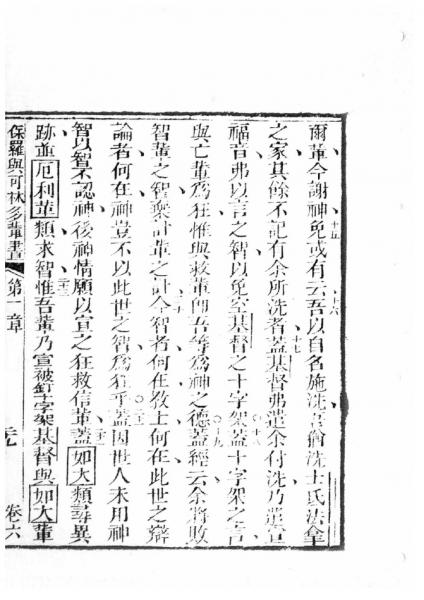 爾輩今謝神免或有云吾以自名施洗
之家其餘不記有余所洗者蓋基督弗遣余付洗乃遣宣
福音弗以言之智以免空基督之十字架蓋十字架之言
與亡輩為狂惟與救輩即吾等為神之德蓋經云余將敗
智輩之智棄計輩之計今智者何在教士何在此世之辯
論者何在神豈不以此世之智為狂乎蓋因世人未用神
智以智不認神後神情願以宣之狂救信輩蓋如大類尋異
跡並厄利輩類求智惟吾輩乃宣被釘十字架基督與如大輩
保羅與可林多輩書
第一章
卷六
十五
十六
十七
十八
十九
二十